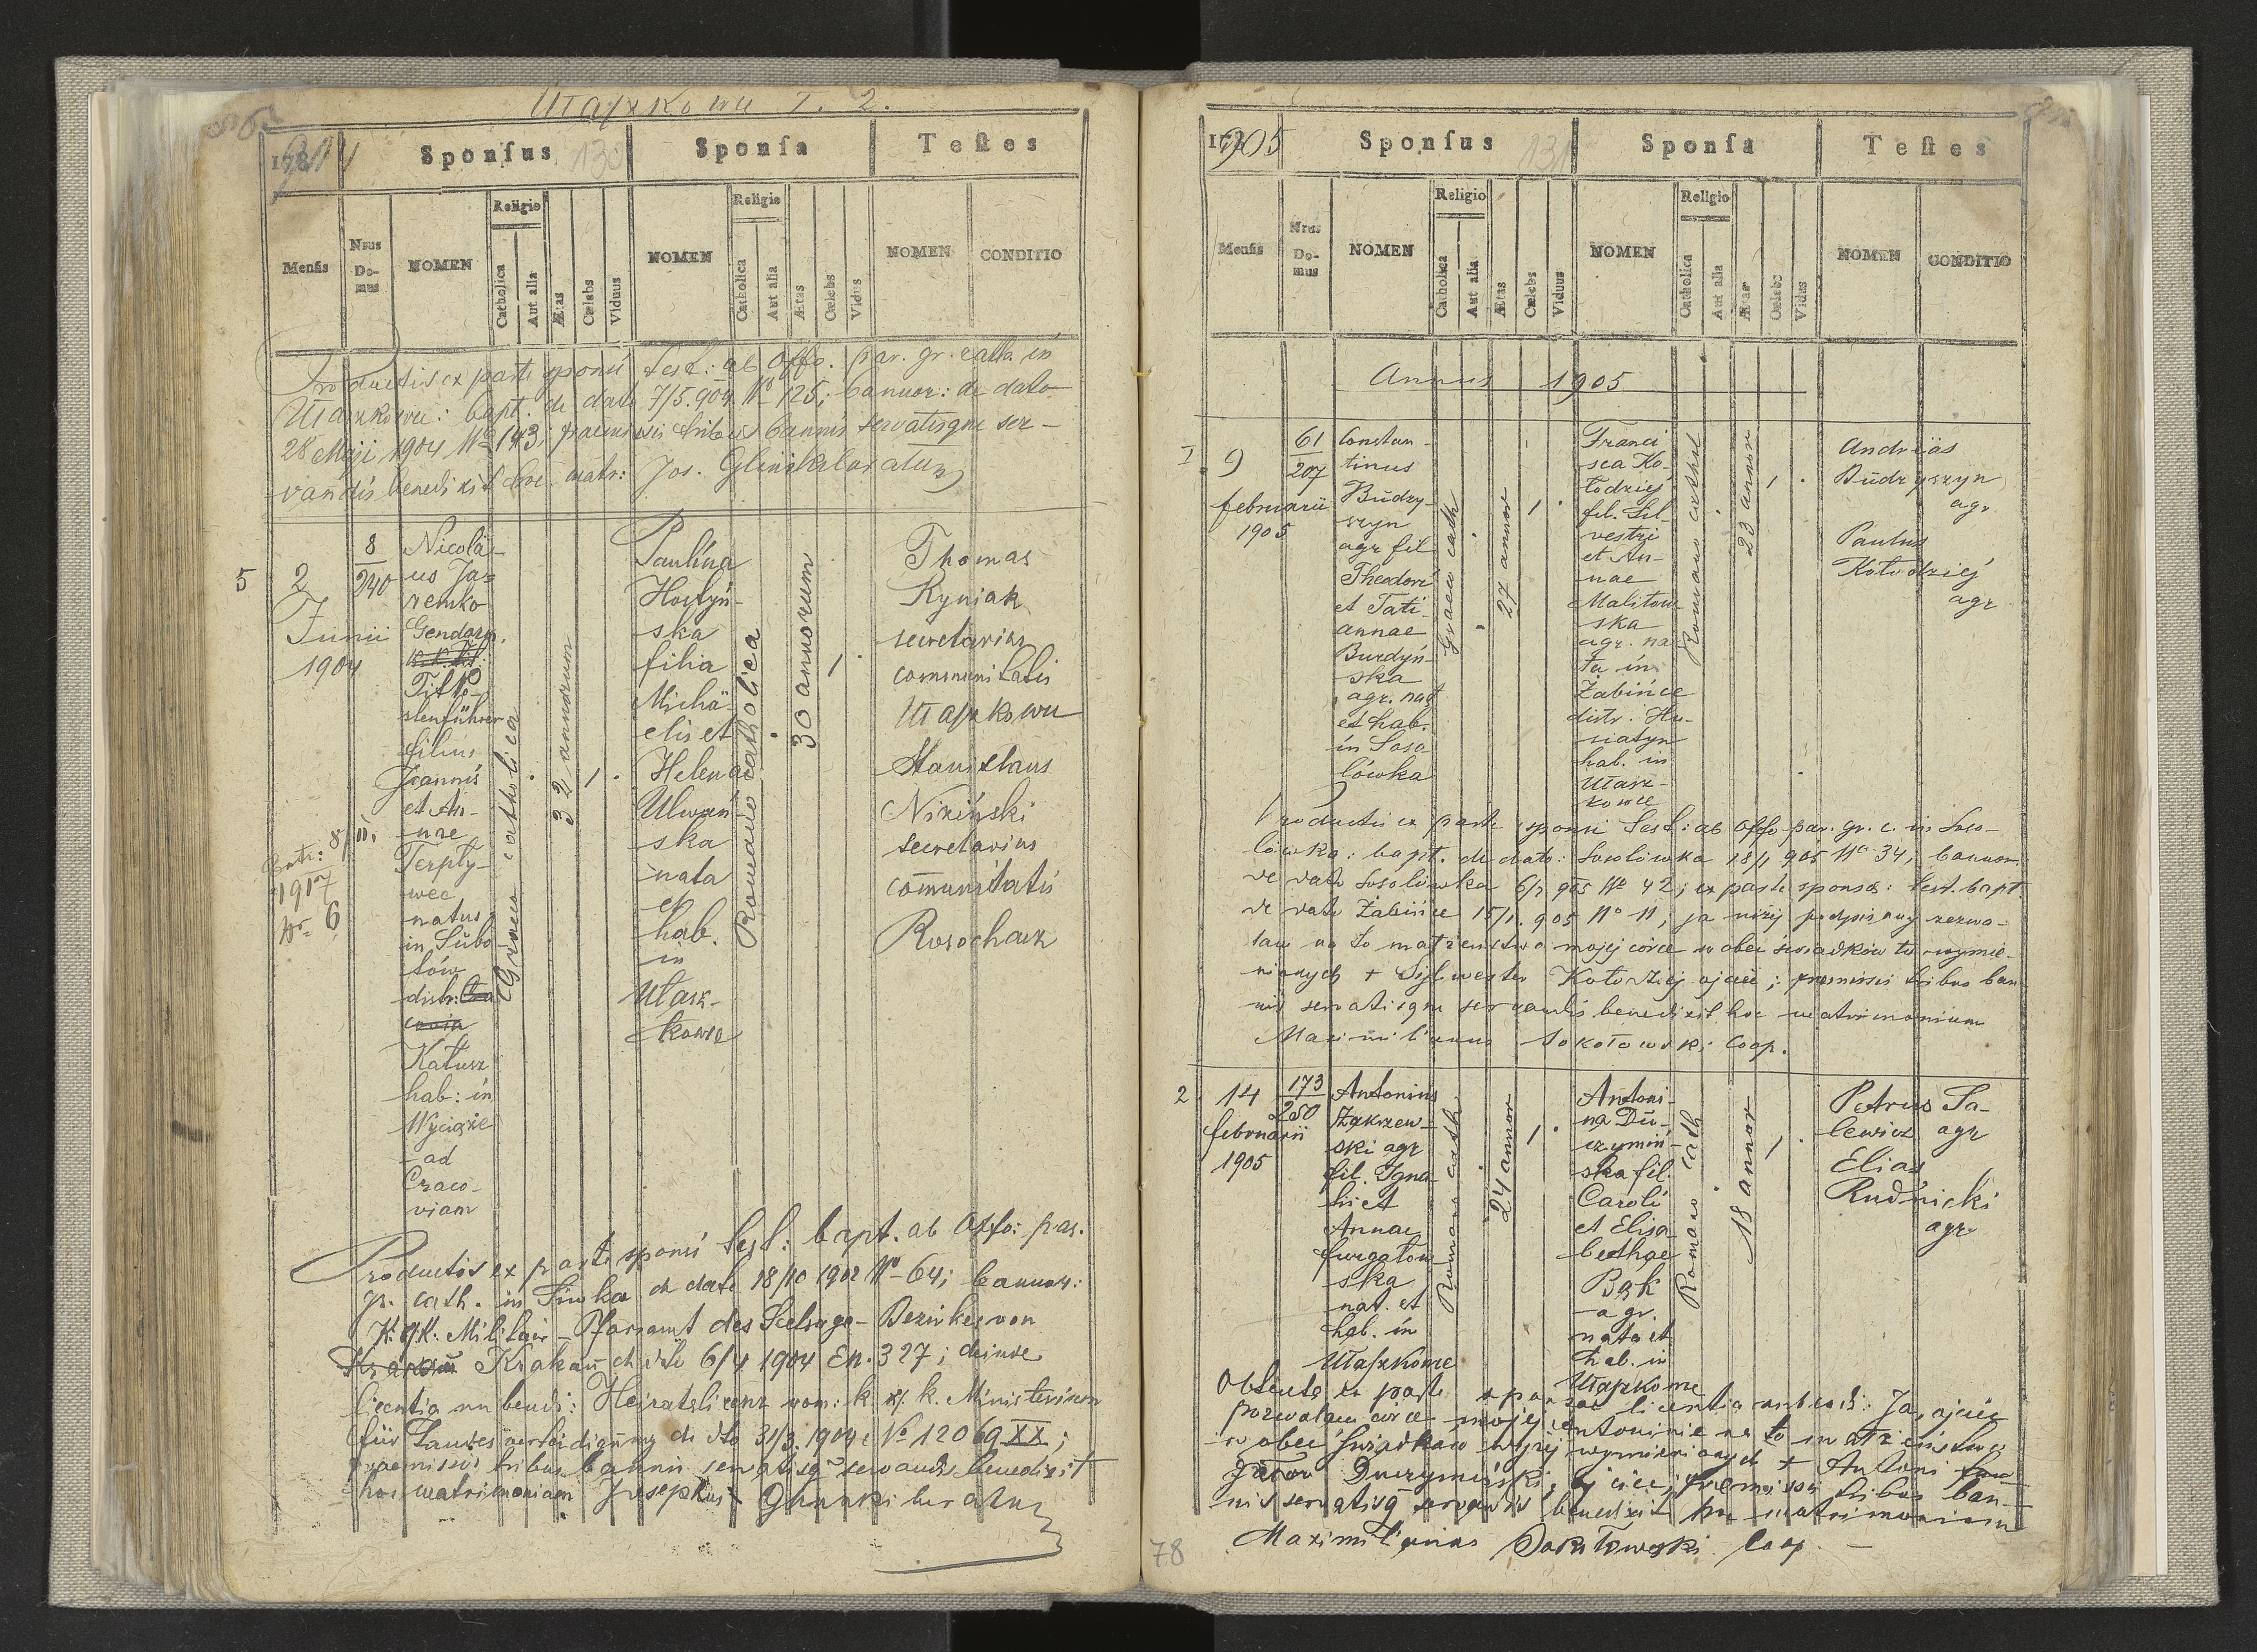 Ułaszkowce T. 2.
Sponsus 130
Sponsa
Testes
Mensis
Nrus Do-mus
NOMEN
Religio
Catholica
Aut alia
Ætas
Cælebs
Viduus
NOMEN
Religio
Catholica
Aut alia
Ætas
Cælebs
Vidus
NOMEN
CONDITIO
Productis ex parte sponsi test: ab Offo. par. gr. cath. in
bapt. de dato 7/5.904 No 125; bannor: de dato
28 Maji 1904 No 143; praemissis tribus bannis servatisque ser-
vandis benedixit hoc matr: Jos. Glinski curatus
5
2
Junii
1904
8
240
Nicola-
us Ja-
remko
Gendarm.
Tit
stenführer
filius
Joannis
et An-
nae
Terpły-
wec
natus
in Subo-
tów
distr:
Kałusz
hab: in
Wyciąże
ad
Craco-
viam
Graeco catholica
32 annorum
1
Paulina
Hostyń-
ska
filia
Micha-
elis et
Helenae
Ulwań-
ska
nata
et
hab.
in
Ułasz-
kowce
Romano catholica
30 annorum
1
Thomas
Ryniak
secretarius
communitatis
Stanislaus
Niziński
secretarius
communitatis
Rosochacz
8/II.
1917
No 6
Productis ex parte sponsi test: bapt. ab Offo: par.
gr. cath. in Siwka de dato 18/10 1902 No 64; bannor:
K. u. K. Militär-Pfarramt des Seelsorge-Bezirkes von
Krakau de dato 6/4 1904 En. 327; deinde
licentia nubendi: Heiratslicenz vom: k. k. Ministerium
für Landesverteidigung de dto 31/3. 1904 No 12069 XX;
praemissis tribus bannis servatisq servandis benedixit
hoc matrimonium Josephus Glinski curatus
1905
Sponsus 131
Sponsa
Testes
Mensis
Nrus Do-mus
NOMEN
Religio
Catholica
Aut alia
Ætas
Cælebs
Viduus
NOMEN
Religio
Catholica
Aut alia
Ætas
Cælebs
Vidus
NOMEN
CONDITIO
Annus 1905
1
9
februarii
1905
61
207
Constan-
tinus
Budzy-
szyn
agr fil
Theodori
et Tati-
annae
Burdyń-
ska
agr. nat
et hab.
in Soso-
lówka
Graeco cath
27 annor
1
Franci-
sca Ko-
łodziej
fil. Sil-
vestri
et An-
nae
Malitow-
ska
agr. na-
ta in
Żabińce
distr. Hu-
siatyn
hab. in
Ułasz-
kowce
Romano cathol
23 annor
1
Andreas
Budzyszyn
agr
Paulus
Kołodziej
agr
Productis ex parte sponsi test: ab Offo par. gr. c. in Soso-
lówka: bapt. de dato: Sosolówka 18/1 905 No 34, bannor.
de dato Sosolówka 6/2 905 No 42; ex parte sponsae: test. bapt.
de dato Żabińce 15/1. 905 No 11; ja niżej podpisany zezwa-
lam na to małżeństwo mojej córce w obec świadków tu wymie-
nionych + Sylwester Kołodziej ojciec; praemissis tribus ban-
nis servatisque servandis benedixit hoc matrimonium
Maximilianus Sokołowski Coop.
2
14
februarii
1905
173
250
Antonius
Zakrzew-
ski agr
fil. Igna-
tii et
Annae
Furgałow-
ska
nat. et
hab. in
Ułaszkowce
Romano cath
24 annor
1
Antoni-
na Du-
czymiń-
ska fil.
Caroli
et Elisa-
bethae
Bąk
agr.
nata et
hab. in
Ułaszkowce
Romano cath
18 annor
1
Petrus Sa-
lewicz agr
Elias
Rudnicki
agr
Obtenta ex parte sponsae licentia nubendi: Ja, ojciec
pozwalam córce mojej Antoninie na to małżeństwo
w obec świadków wyżej wymienionych + Antoni
Duczymiński, ojciec; praemissis tribus ban-
nis servatisq servandis benedixit hoc matrimonium
Maximilianus Sokołowski Coop.
78